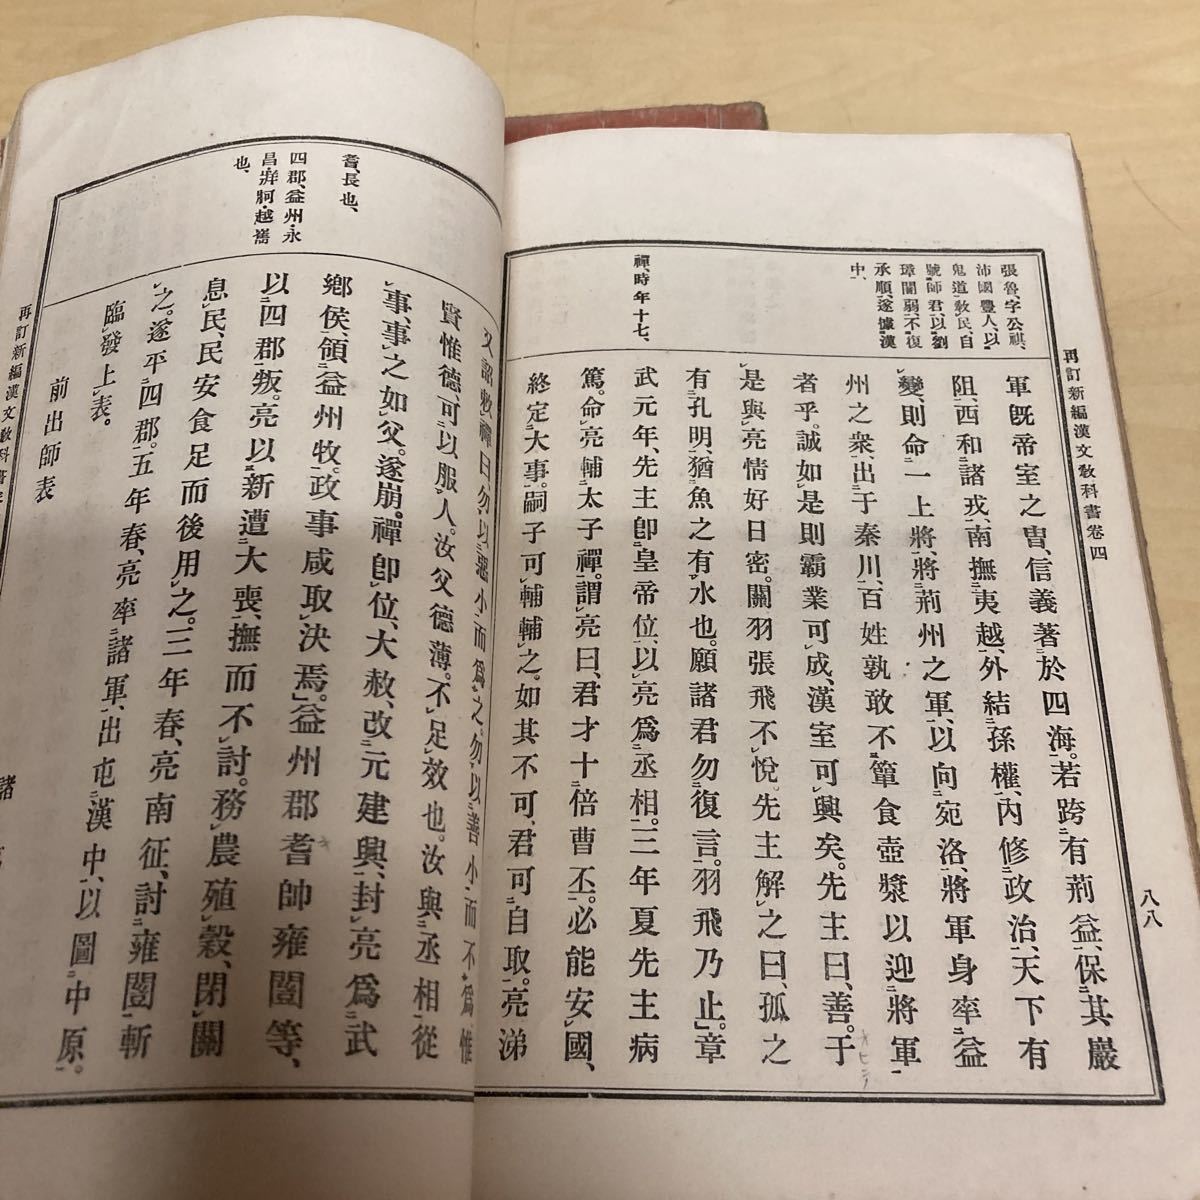 再訂新編漢文教科書卷四
八八
張魯、字公祺、
沛國豐人、以
鬼道教民、自
號師君、以劉
璋闇弱、不復
承順、遂據漢
中、
禪、時年十七、
軍旣帝室之冑、信義著於四海。若跨有荊益、保其巖
阻、西和諸戎、南撫夷越、外結孫權、內修政治、天下有
變、則命一上將、將荊州之軍、以向宛洛、將軍身率益
州之衆、出于秦川、百姓孰敢不簞食壺漿以迎將軍
者乎。誠如是則霸業可成、漢室可興矣。先主曰、善。于
是與亮情好日密。關羽張飛不悅。先主解之曰、孤之
有孔明、猶魚之有水也。願諸君勿復言。羽飛乃止。章
武元年、先主卽皇帝位、以亮爲丞相。三年夏先主病
篤。命亮輔太子禪。謂亮曰、君才十倍曹丕。必能安國、
終定大事。嗣子可輔輔之。如其不可、君可自取。亮涕
耆、長也、
四郡、益州・永
昌・牂牁・越嶲
也、
又詔敕禪曰勿以惡小而爲之。勿以善小而不爲。惟
賢惟德、可以服人。汝父德薄。不足效也。汝與丞相從
事、事之如父。遂崩。禪卽位、大赦、改元建興、封亮爲武
鄕侯、領益州牧。政事咸取決焉。益州郡耆帥雍闓等、
以四郡叛。亮以新遭大喪、撫而不討。務農殖穀、閉關
息民、民安食足而後用之。三年春、亮南征、討雍闓斬
之。遂平四郡。五年春、亮率諸軍、出屯漢中、以圖中原。
臨發上表。
前出師表
再訂新編漢文教科書
諸